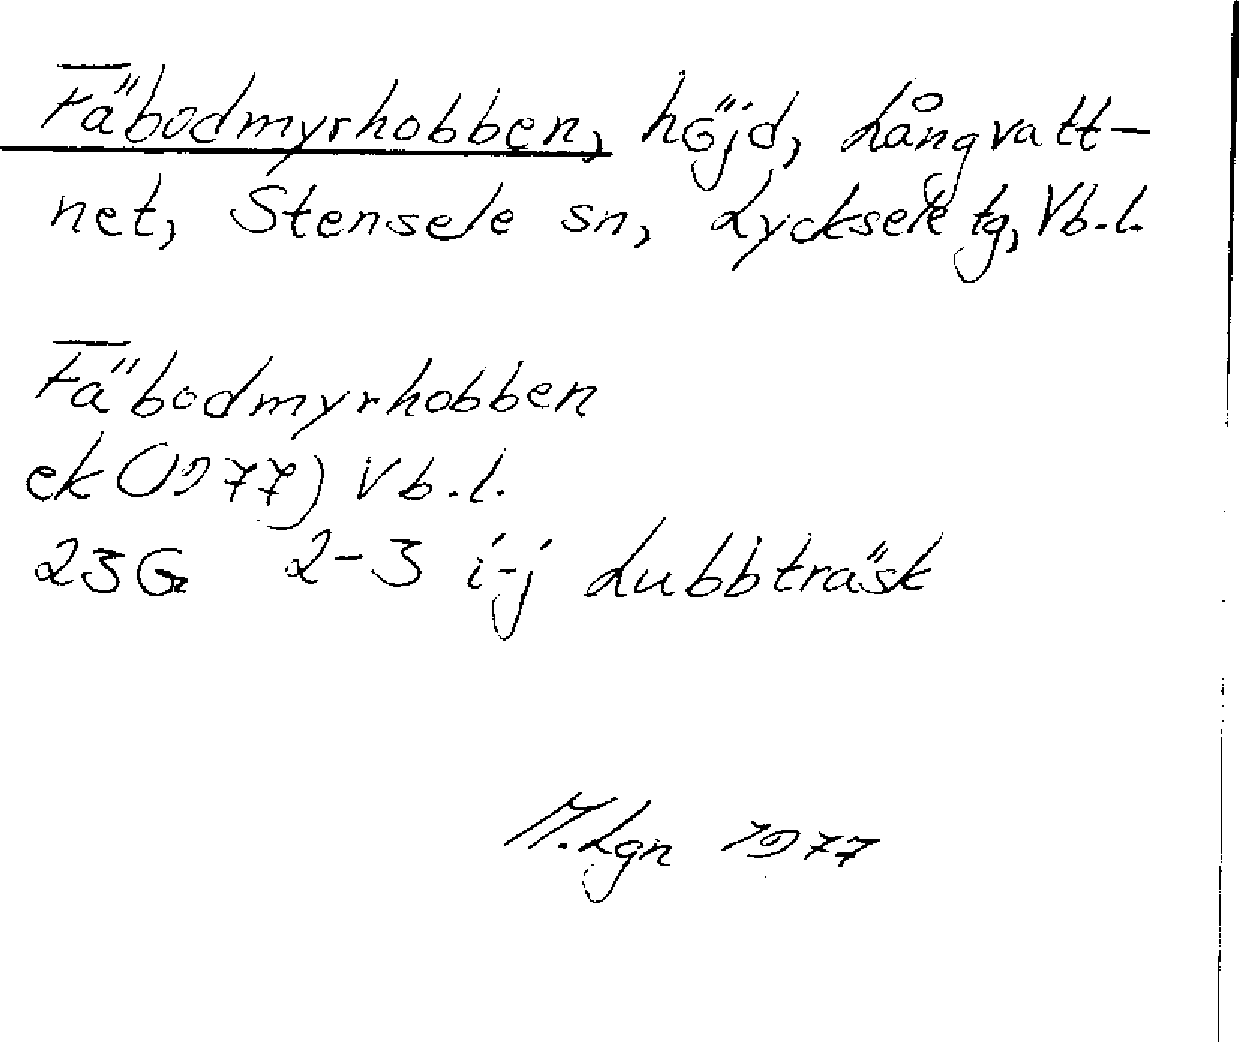 Fäbodmyrhobben, höjd, Långvatt-
net, Stensele sn, Lycksele tg, Vb.l.
Fäbodmyrhobben
ek (1977) Vb.l.
23G 2-3 i-j Lubbträsk
M.Lgn 1977